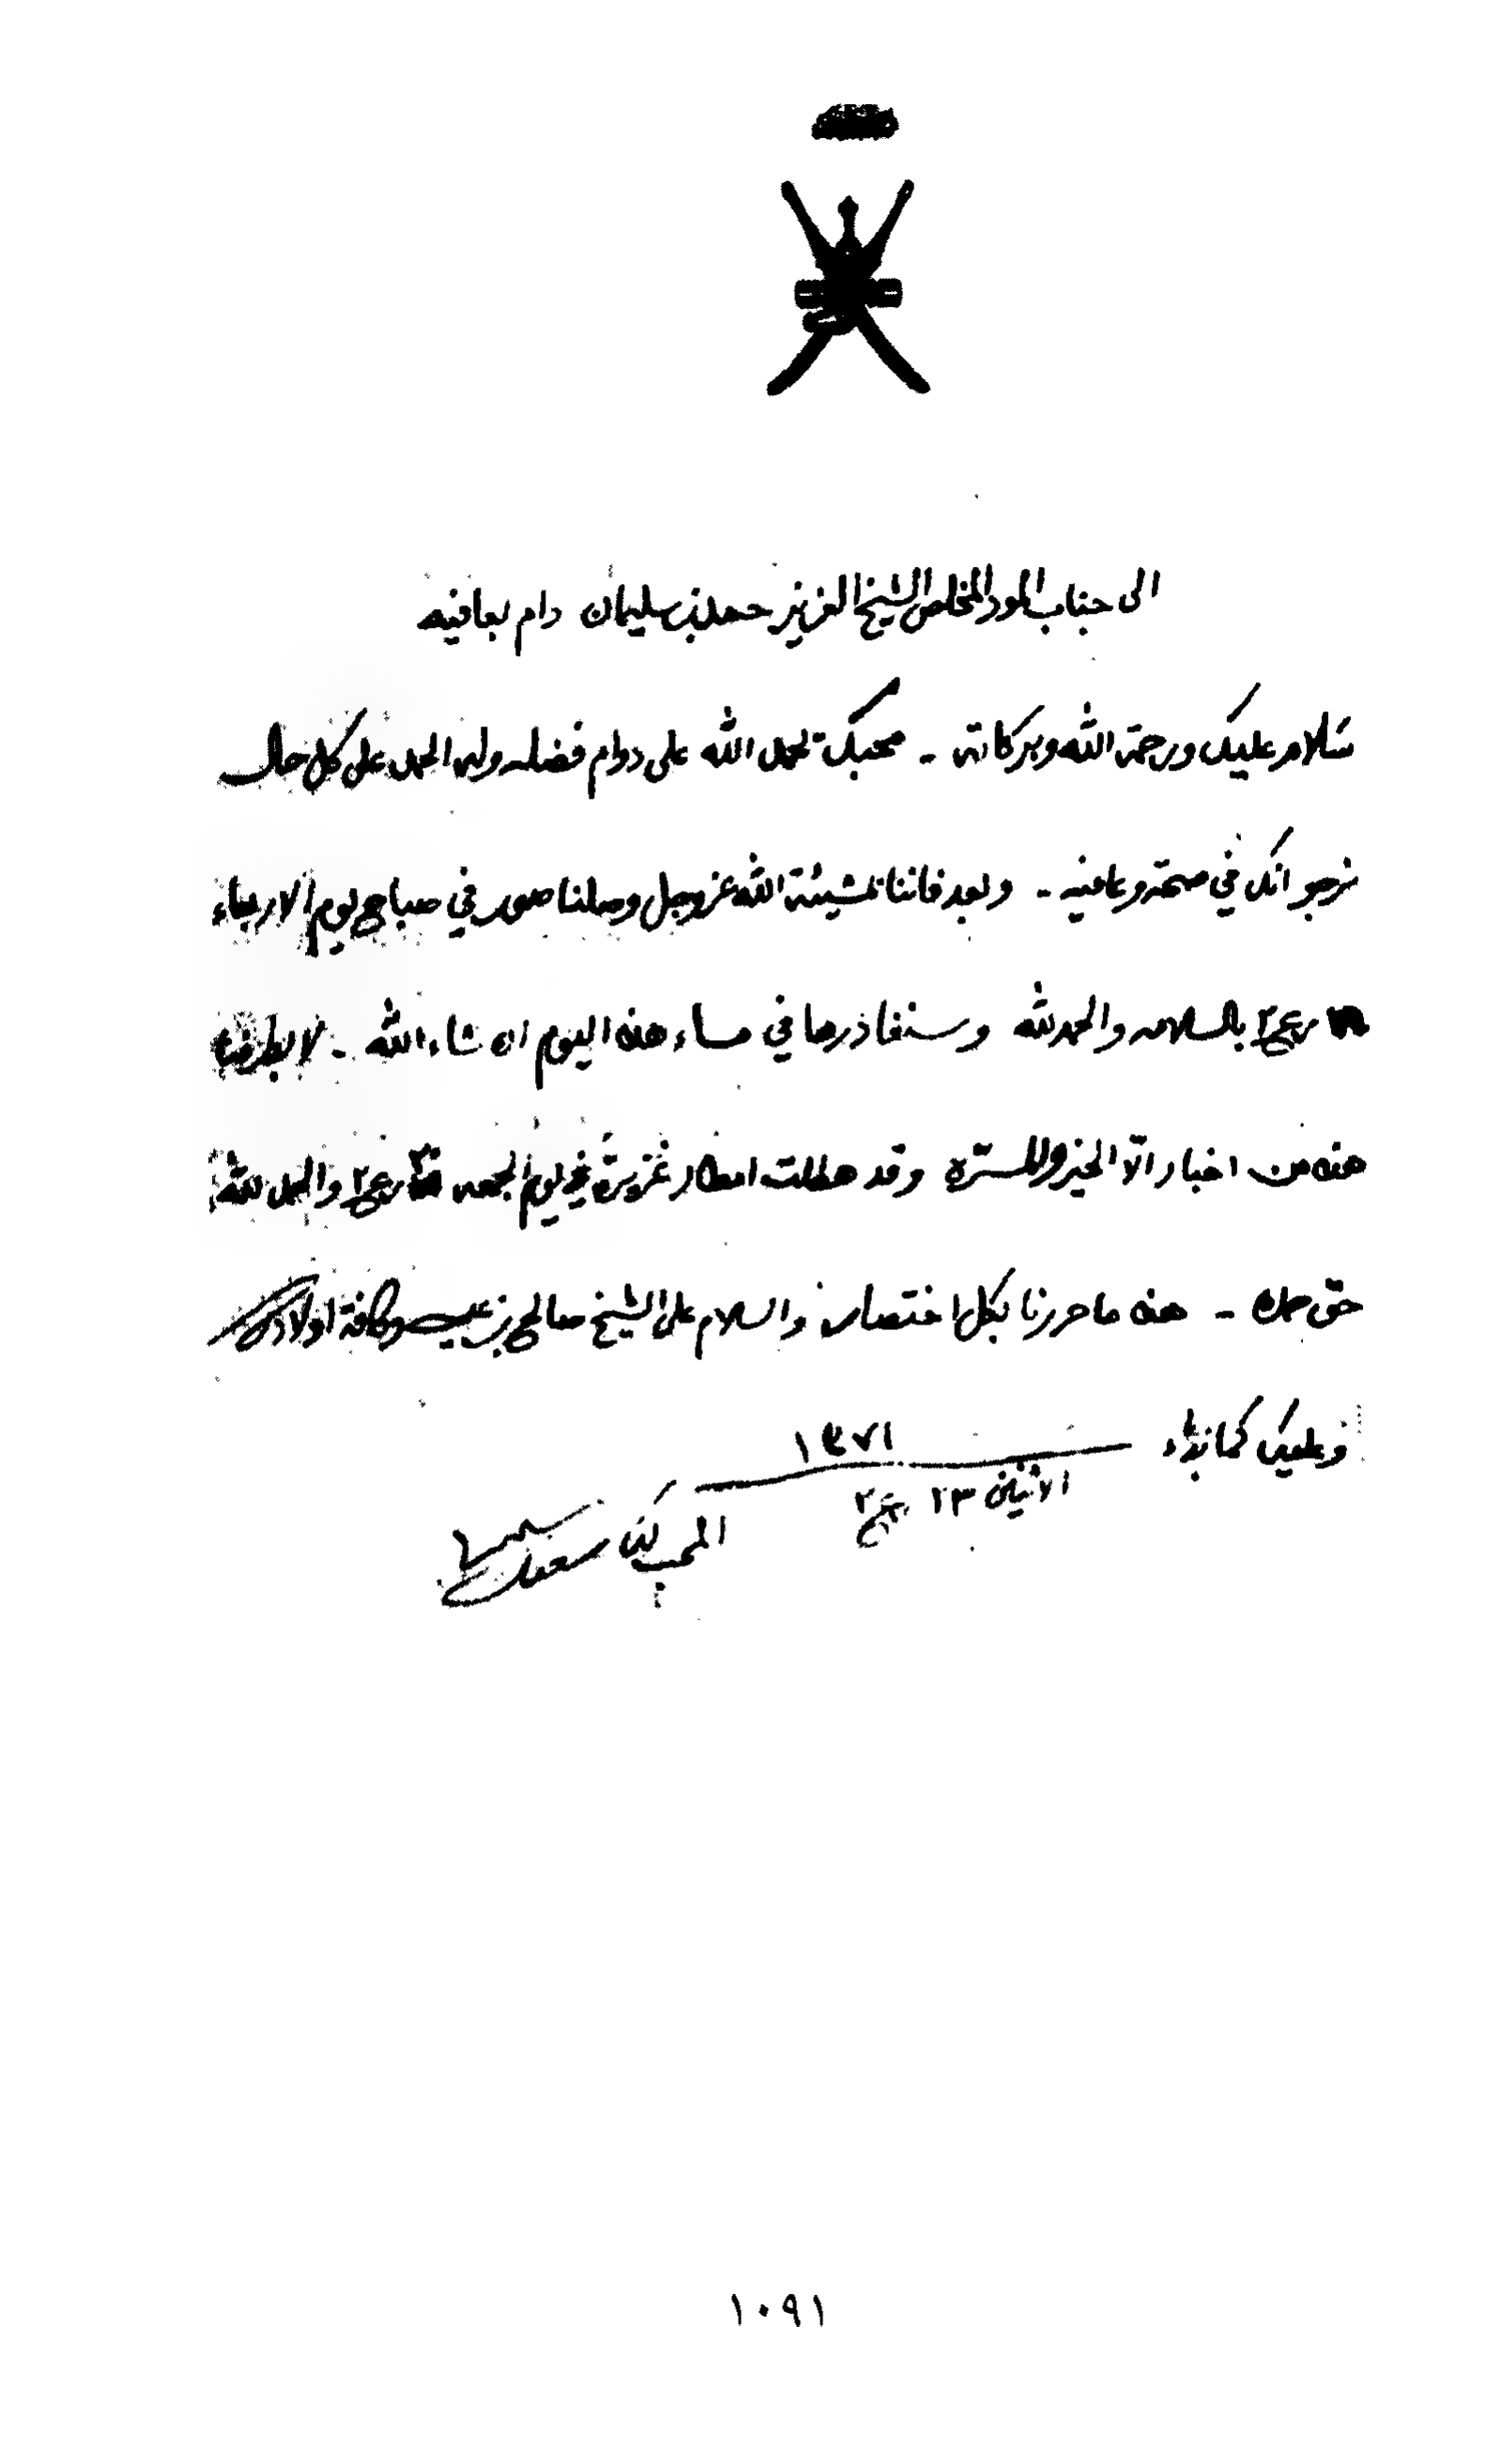 الى جناب المود المخلص الشيخ العزيز حمد بن سليمان دام بعافيه
سلام عليك ورحمة الله وبركاته - محبك يحمد الله على دوام فضله وله الحمد على كل حال
نرجو انك في صحة وعافيه - وبعد فاننا بمشيئة الله عز وجل وصلنا صور في صباح يوم الاربعاء
ربيع٢ بالسلامه والحمد لله وسنغادرها في مساء هذه اليوم ان شاء الله - لا بطرفنا
هذه من اخبار الّا الخير والمسرّه وقد هطلت امطار غزيرة في يوم الجمعه ربيع٢ والحمد لله
حق حمده - هذه ما حررنا بكل اختصار والسلام على الشيخ صالح بن عيسى وكافة اولادك
وعليك كما بداء
١٣٧١
الاثنين ٢٣ ربيع٢
المحب لك سعيد
١٠٩١